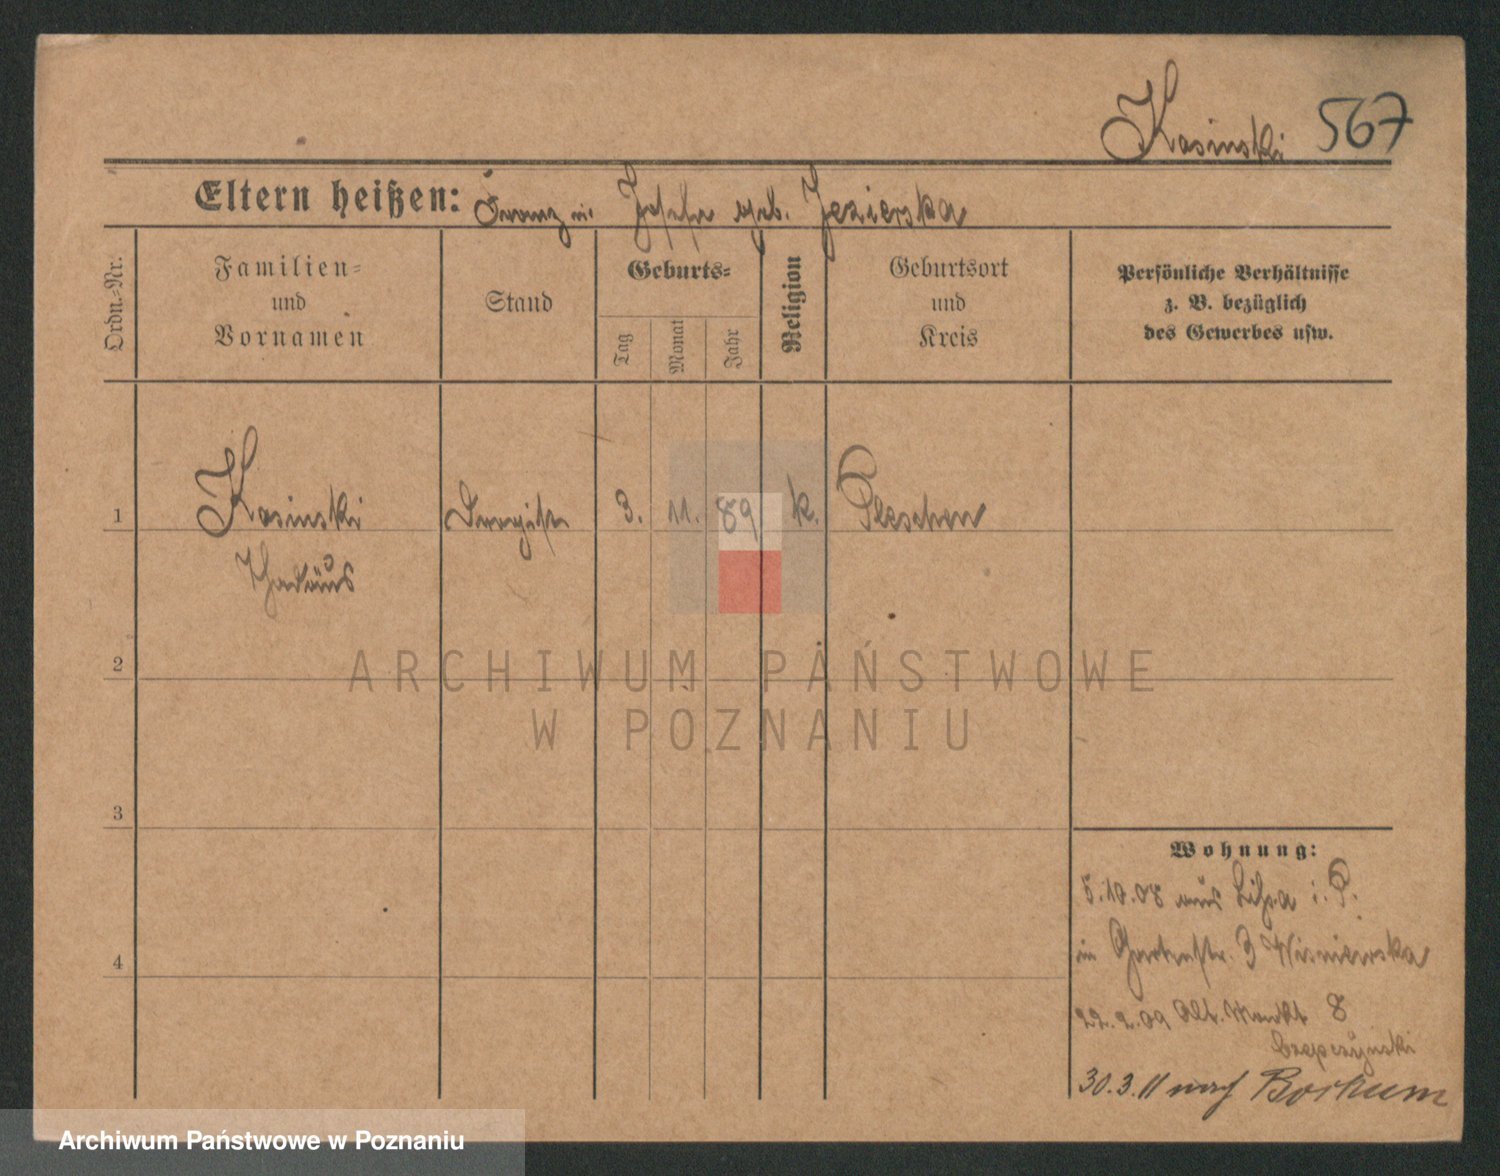 Kasinski 567
Eltern heißen: Franz u. Josefa geb. Jezierska
Ordn.-Nr.
Familien-
und
Vornamen
Stand
Geburts-
Tag
Monat
Jahr
Religion
Geburtsort
und
Kreis
Persönliche Verhältnisse
z. B. bezüglich
des Gewerbes usw.
1 Kasinski Drogist 3. 11. 89 k. Pleschen
Thadäus
2
3
4
Wohnung:
5.10.08 aus Lissa i. P.
in Gartenstr. 3 Wisniewska
22.2.09 Alt. Markt 8
Czepczynski
30.3.11 nach Borkum
ARCHIWUM PAŃSTWOWE
W POZNANIU
Archiwum Państwowe w Poznaniu